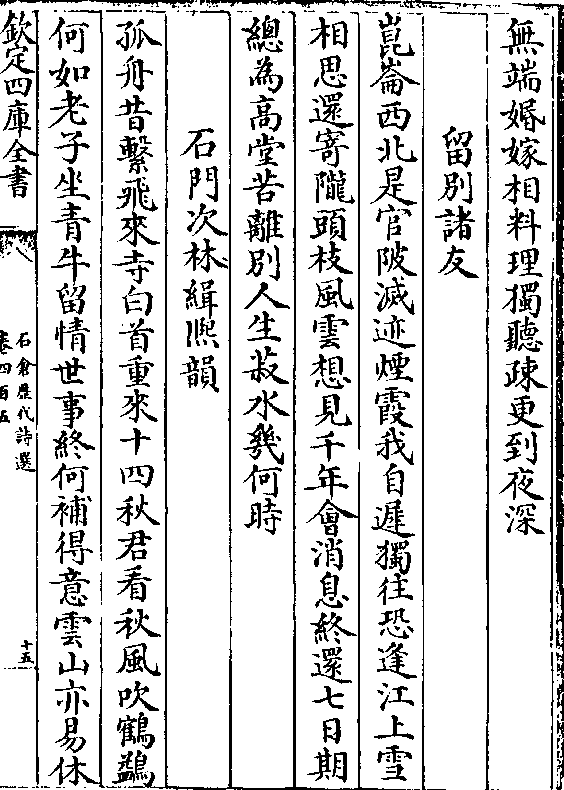 無端婚嫁相料理獨聽疎更到夜深
留別諸友
崑崙西北是官陂滅迹煙霞我自遲獨往恐逢江上雪
相思還寄隴頭枝風雲想見千年會消息終還七日期
總為高堂苦離別人生菽水幾何時
石門次林緝熙韻
孤舟昔繫飛來寺白首重來十四秋君看秋風吹鶴鷀
何如老子坐青牛留情世事終何補得意雲山亦易休
欽定四庫全書
石倉歷代詩選
卷四百五
十五